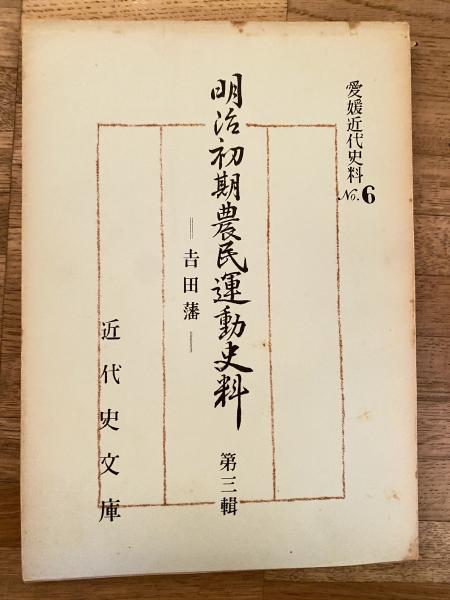 愛媛近代史料 No.6
明治初期農民運動史料 第三輯
══吉田藩══
近代史文庫